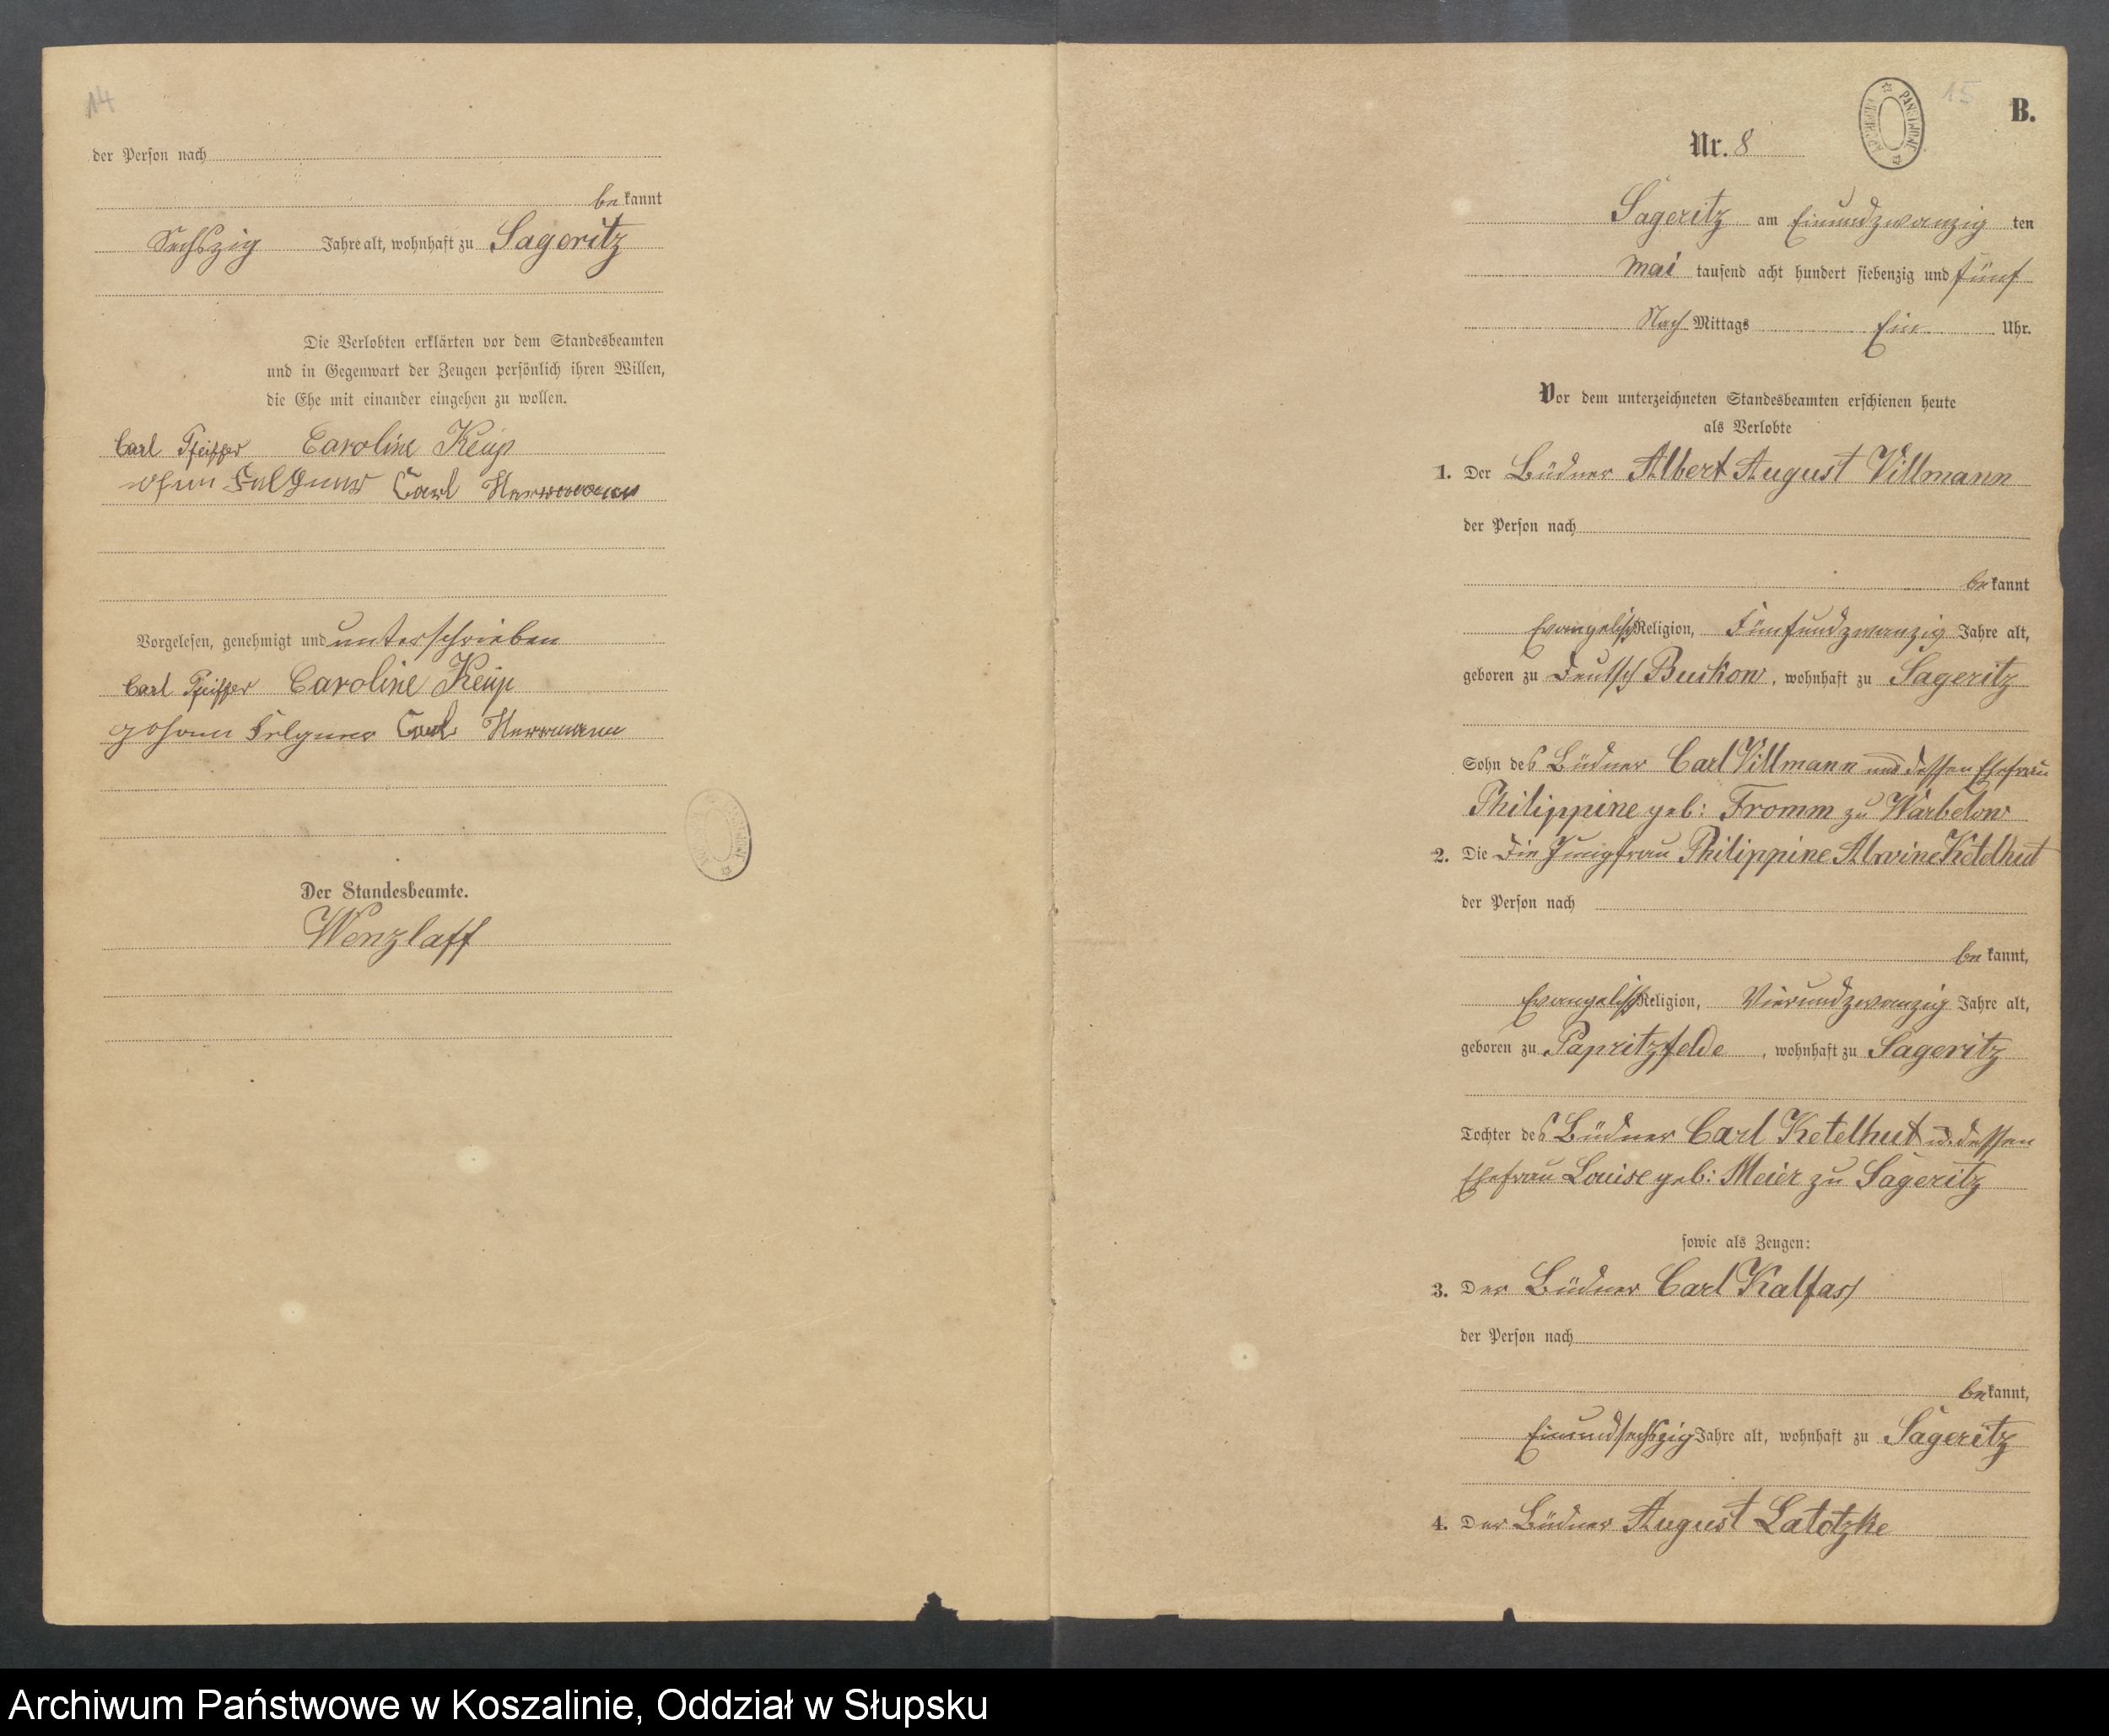 14
der Person nach
bekannt
Sechszig Jahre alt, wohnhaft zu Sageritz
Die Verlobten erklärten vor dem Standesbeamten
und in Gegenwart der Zeugen persönlich ihren Willen,
die Ehe mit einander eingehen zu wollen.
Carl Pfeiffer Caroline Keup
Carl Herrmann
Vorgelesen, genehmigt und unterschrieben
Carl Pfeiffer Caroline Keup
Johann Carl Herrmann
Der Standesbeamte.
Wenzlaff
15
B.
Nr. 8
Sageritz am Einundzwanzig ten
Mai tausend acht hundert siebenzig und fünf
Nach Mittags Ein Uhr.
Vor dem unterzeichneten Standesbeamten erschienen heute
als Verlobte
1. Der Büdner Albert August Villmann
der Person nach
bekannt
Evangelisch Religion, Fünfundzwanzig Jahre alt,
geboren zu Deutsch Buckow, wohnhaft zu Sageritz
Sohn des Büdner Carl Villmann und dessen Ehefrau
Philippine geb: Fromm zu Warbelow
2. Die Die Jungfrau Philippine Alwine Ketelhut
der Person nach
bekannt,
Evangelisch Religion, Vierundzwanzig Jahre alt,
geboren zu Papritzfelde, wohnhaft zu Sageritz
Tochter des Büdner Carl Ketelhut u. dessen
Ehefrau Louise geb: Meier zu Sageritz
sowie als Zeugen:
3. Der Büdner Carl Kalfass
der Person nach
bekannt,
Einundsechszig Jahre alt, wohnhaft zu Sageritz
4. Der Büdner August Latotzke
Archiwum Państwowe w Koszalinie, Oddział w Słupsku